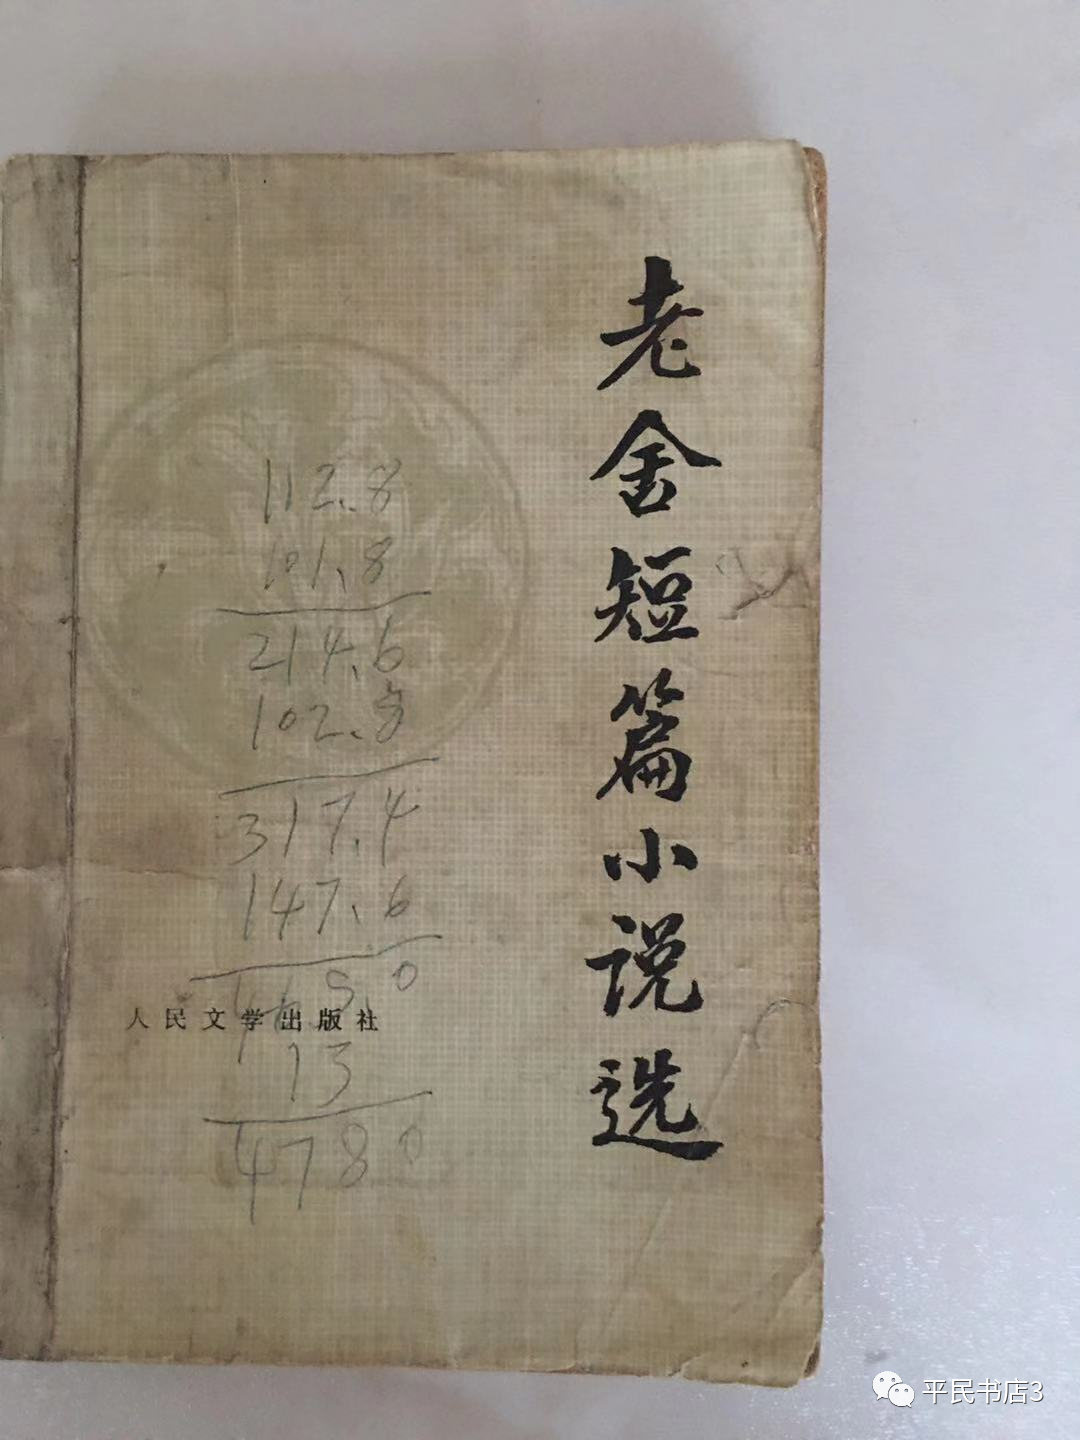 老舍短篇小说选
112.8
101.8
214.6
102.8
317.4
147.6
465 0
人民文学出版社
13
478 0
平民书店3